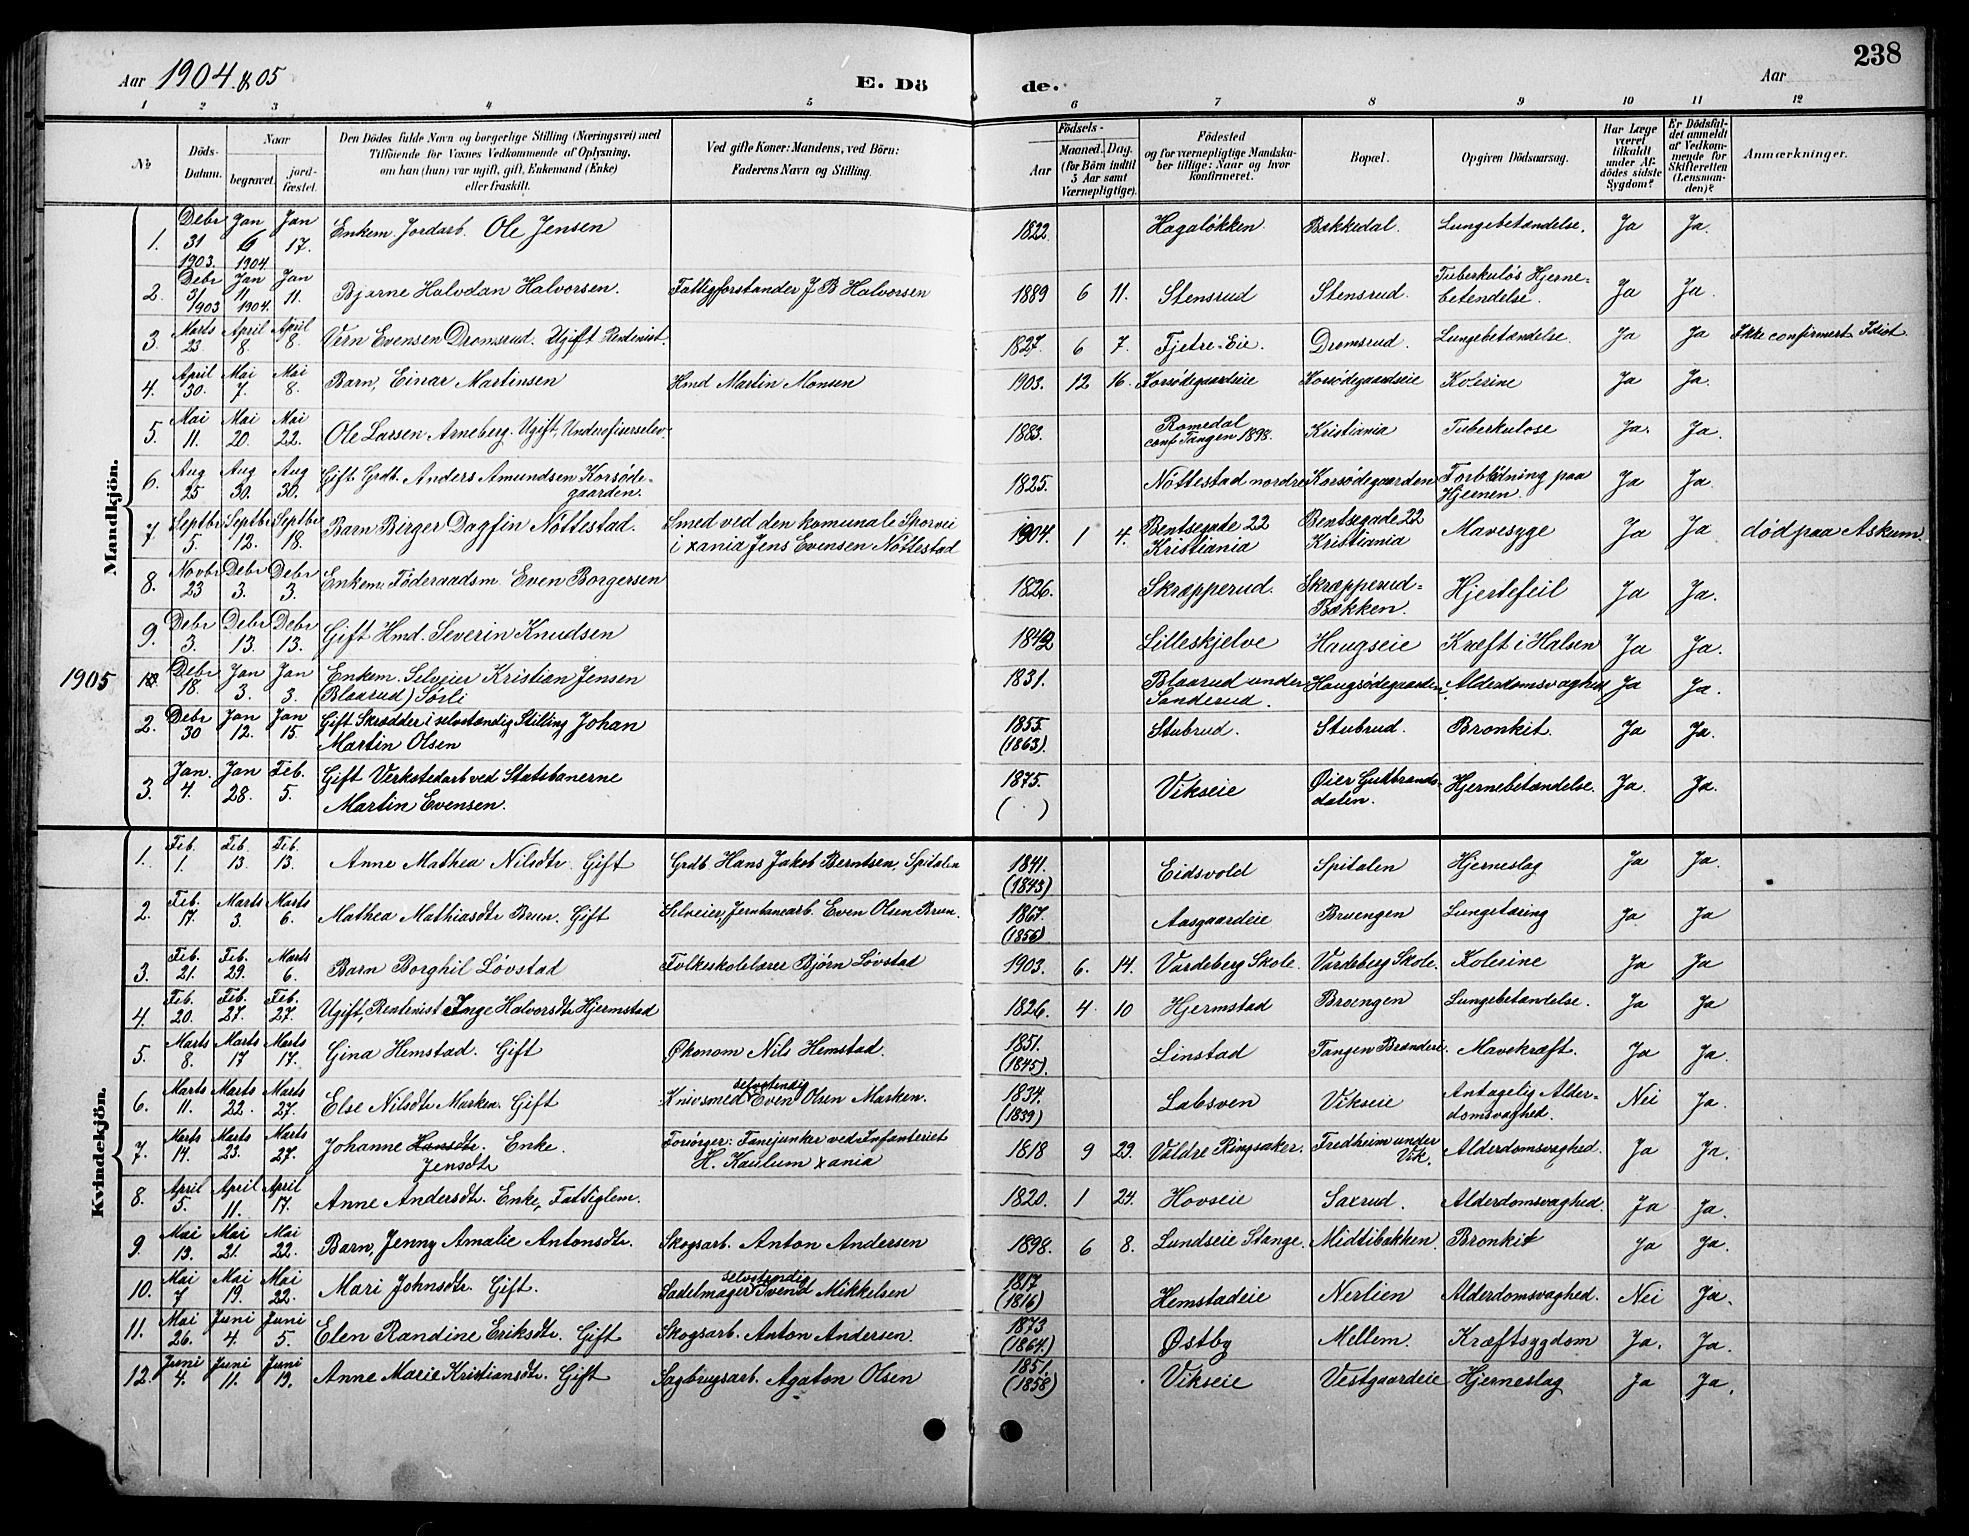 238
Aar 1904 & 05
E. Dö de.
Aar
1 2 3 4 5 6 7 8 9 10 11 12
№
Döds-
Datum.
Naar
begravet.
jord-
fæstet.
Den Dödes fulde Navn og borgerlige Stilling (Næringsvei) med
Tilföiende for Voxnes Vedkommende af Oplysning,
om han (hun) var ugift, gift, Enkemand (Enke)
eller fraskilt.
Ved gifte Koner: Mandens, ved Börn:
Faderens Navn og Stilling.
Födsels-
Aar
Maaned. Dag.
(for Börn indtil
5 Aar samt
Værnepligtige).
Födested
og for værnepligtige Mandska-
ber tillige: Naar og hvor
konfirmeret.
Bopæl.
Opgiven Dödsaarsag.
Har Læge
været
tilkaldt
under Af-
dödes sidste
Sygdom?
Er Dödsfal-
det anmeldt
af Vedkom-
mende for
Skifteretten
(Lensman-
den)?
Anmærkninger.
Mandkjön.
1. Debr 31 1903. Jan 6 1904. Jan 17. Enkem. Jordarb. Ole Jensen 1822. Hagaløkken Bakkedal. Lungebetændelse. Ja Ja.
2. Debr 31/1903 Jan 11 1904. Jan 11. Bjarne Halvdan Halvorsen. Fattigforstander J B Halvorsen 1889 6 11. Stensrud Stensrud. Tuberkuløs Hjerne-
betendelse. Ja Ja.
3. Marts 23 April 8. April 8. Evensen Dromsrud. Ugift 1827. 6 7. Tjetre-Eie. Dromsrud. Lungebetændelse. Ja Ja Ikke confirmert Idiot
4. April 30. Mai 7. Mai 8. Barn, Einar Martinsen Hmd Martin Monsen 1903. 12 16. Korsødegaardseie Korsødegaardseie Kolerine Ja Ja.
5. Mai 11. Mai 20. Mai 22. Ole Larsen Arneberg. Ugift, Underofiserselev. 1883. Romedal
conf Tangen 1898. Kristiania Tuberkulose Ja. Ja.
6. Aug 25 Aug 30. Aug 30. Gift Grdb. Anders Amundsen Korsøde-
gaarden. 1825. Nøttestad nordre Korsødegaarden Forblødning paa
Hjernen. Ja Ja.
7. Septbr 5. Septbr 12. Septbr 18. Barn Birger Dagfin Nøttestad. Smed ved den komunale Sporvei
i xania Jens Evensen Nøttestad 1904. 1 4. Bentsegade 22
Kristiania Bentsegade 22
Kristiania Mavesyge Ja Ja død paa Askum.
8. Novbr 23 Debr 3. Debr 3. Enkem. Føderaadsm. Even Borgersen 1826. Skræpperud. Skræpperud-
Bakken. Hjertefeil Ja Ja.
9. Debr 3. Debr 13. Debr 13. Gift Hmd. Severin Knudsen 1842 Lilleskjelve Haugseie Kræft i Halsen Ja Ja.
1905 Debr 18. Jan 3. Jan 3. Enkem. Selveier Kristian Jensen
(Blaarud) Sørli 1831. Blaarud under
Sanderud. Haugsødegaarden Alderdomsvaghed Ja Ja.
2. Debr 30 Jan 12. Jan 15. Gift Skrædder i selvstændig Stilling Johan
Martin Olsen 1855
(1863). Stubrud. Stubrud. Bronkit. Ja Ja.
3. Jan. 4. Jan 28. Feb. 5. Gift Verkstedarb ved Statsbanerne
Martin Evensen. 1875.
( ) Vikseie Øier Gudbrands-
dalen. Hjernebetændelse. Ja. Ja.
Kvindekjön.
1. Feb. 1. Feb. 13. Feb. 13. Anne Mathea Nilsdtr. Gift Grdb. Hans Jakob Berntsen, Spitalen 1841.
(1843) Eidsvold Spitalen Hjerneslag Ja Ja.
2. Feb. 17. Marts 3. Marts 6. Mathea Mathiasdtr Brun. Gift Selveier, Jernbanearb. Even Olsen Brun. 1867.
(1856) Aasgaardeie Bruengen Lungetæring Ja Ja
3. Feb. 21. Feb. 29. Marts 6. Barn Borghil Løvstad Folkeskolelærer Bjørn Løvstad 1903. 6. 14. Vardeberg Skole. Vardeberg Skole. Kolerine Ja Ja
4. Feb. 20. Feb. 27. Feb. 27. Ugift, Rentenist Inge Halvorsdtr Hjermstad 1826. 4 10 Hjermstad Bruengen Lungebetændelse. Ja Ja
5. Marts 8. Marts 17 Marts 17. Gina Hemstad. Gift Økonom Nils Hemstad. 1851.
(1845). Linstad Tangen Brænderi. Mavekræft. Ja Ja.
6. Marts 11. Marts 22. Marts 27. Else Nilsdtr Marken. Gift selvstendig
Knivsmed Even Olsen Marken. 1834.
(1839) Labsven Vikseie Antagelig Alder-
domsvaghed. Nei Ja.
7. Marts 14. Marts 23. Marts 27. Johanne Hansdtr. Enke.
Jensdtr Forsørger: Fanejunker ved Infanteriet
H. Kaulum xania 1818 9 29. Valdre Ringsaker. Fredheim under
Vik. Alderdomsvaghed. Ja Ja.
8. April 5. April 11. April 17. Anne Andersdtr. Enke, Fattiglem. 1820. 1 24. Hovseie Saxrud. Alderdomsvaghed. Ja Ja.
9. Mai 13. Mai 21. Mai 22. Barn, Jenny Amalie Antonsdtr. Skogsarb. Anton Andersen 1898. 6 8. Lundseie Stange. Midtibakken. Bronkit Ja Ja.
10. Mai 7 Mai 19. Mai 22. Mari Johnsdtr. Gift. selvstendig
Sadelmager Svend Mikkelsen 1817
(1816) Hemstadeie Nerlien Alderdomsvaghed. Nei Ja.
11. Mai 26. Juni 4. Juni 5. Elen Randine Eriksdtr. Gift Skogsarb. Anton Andersen. 1873
(1864.) Østby Mellem. Kræftsygdom Ja. Ja.
12. Juni 4. Juni 11. Juni 19. Anne Marie Kristiansdtr. Gift Sagbrugsarb. Agaton Olsen 1851.
(1858) Vikseie Vestgaardeie Hjerneslag Ja Ja.